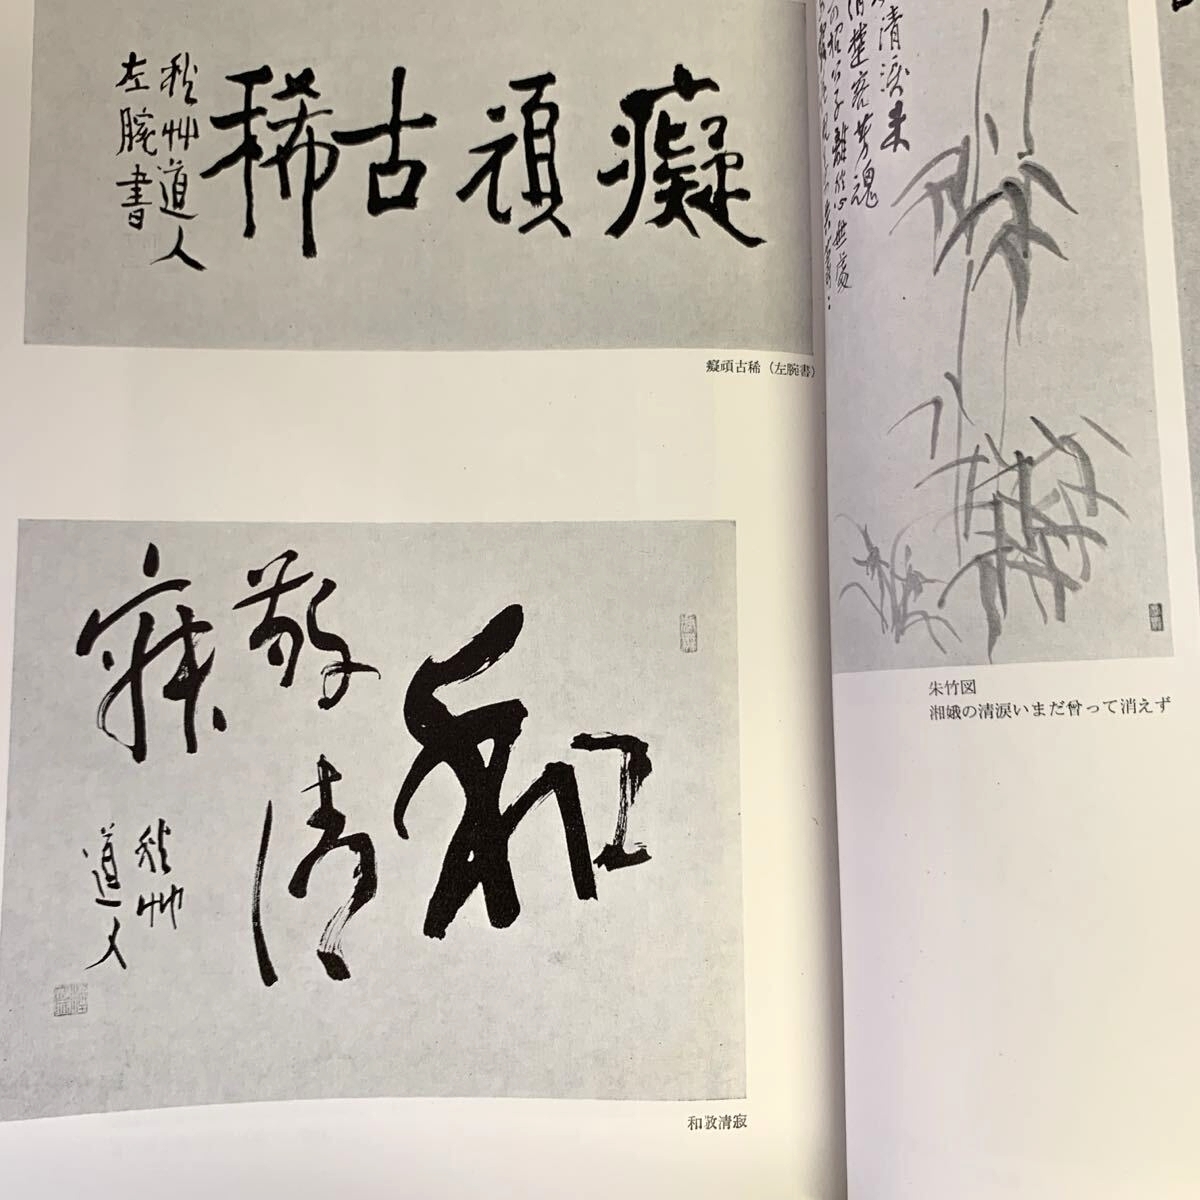 癡頑古稀
秋艸道人
左腕書
癡頑古稀（左腕書）
和
敬清
寂
秋艸
道人
和敬清寂
清涙未
清楚客芳魂
朱竹図
湘娥の清涙いまだ曾って消えず